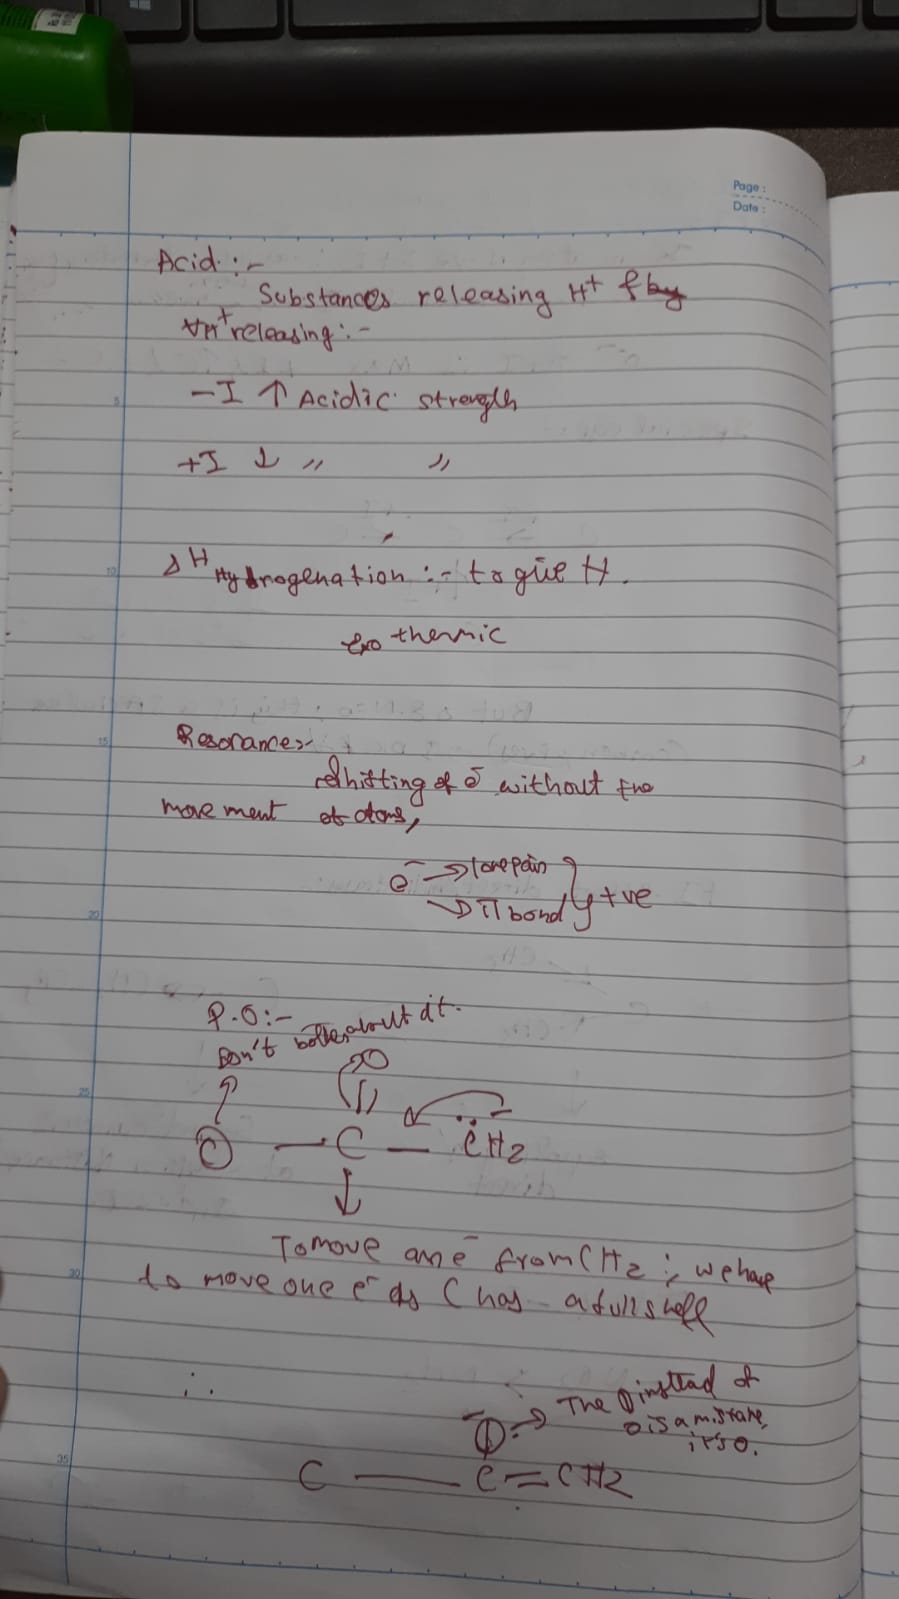 Page :
Date :
Acid :-
Substances releasing H⁺
H⁺ releasing :-
-I ↑ Acidic strength
+I ↓ " "
ΔH Hydrogenation :- to give H.
Exothermic
Resonance:-
Shifting of e⁻ without the
movement of atoms,
e⁻ → lone pair
→ π bond } +ve
P.O:-
Don't bother about it.
O
C — C — C̈H2
To move one e⁻ from CH2 ; we have
to move one e⁻ as C has a full shell
∴
The instead of
O is a mistake,
it's O.
C — C = CH2
5
10
15
20
25
30
35